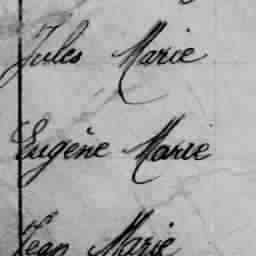 Jules Marie
Eugène Marie
Jean Marie